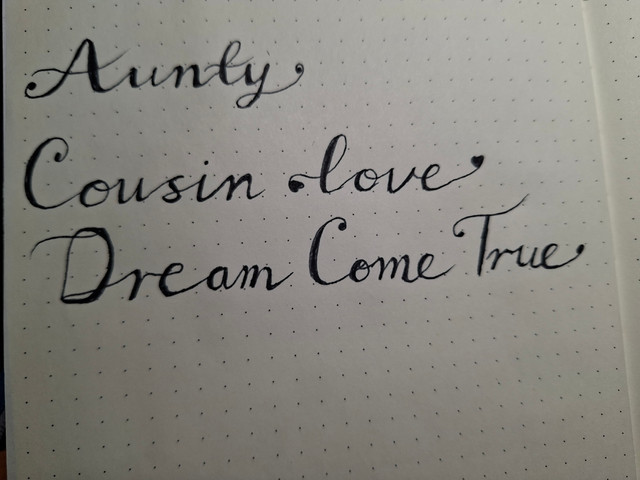 Aunty
Cousin love
Dream Come True